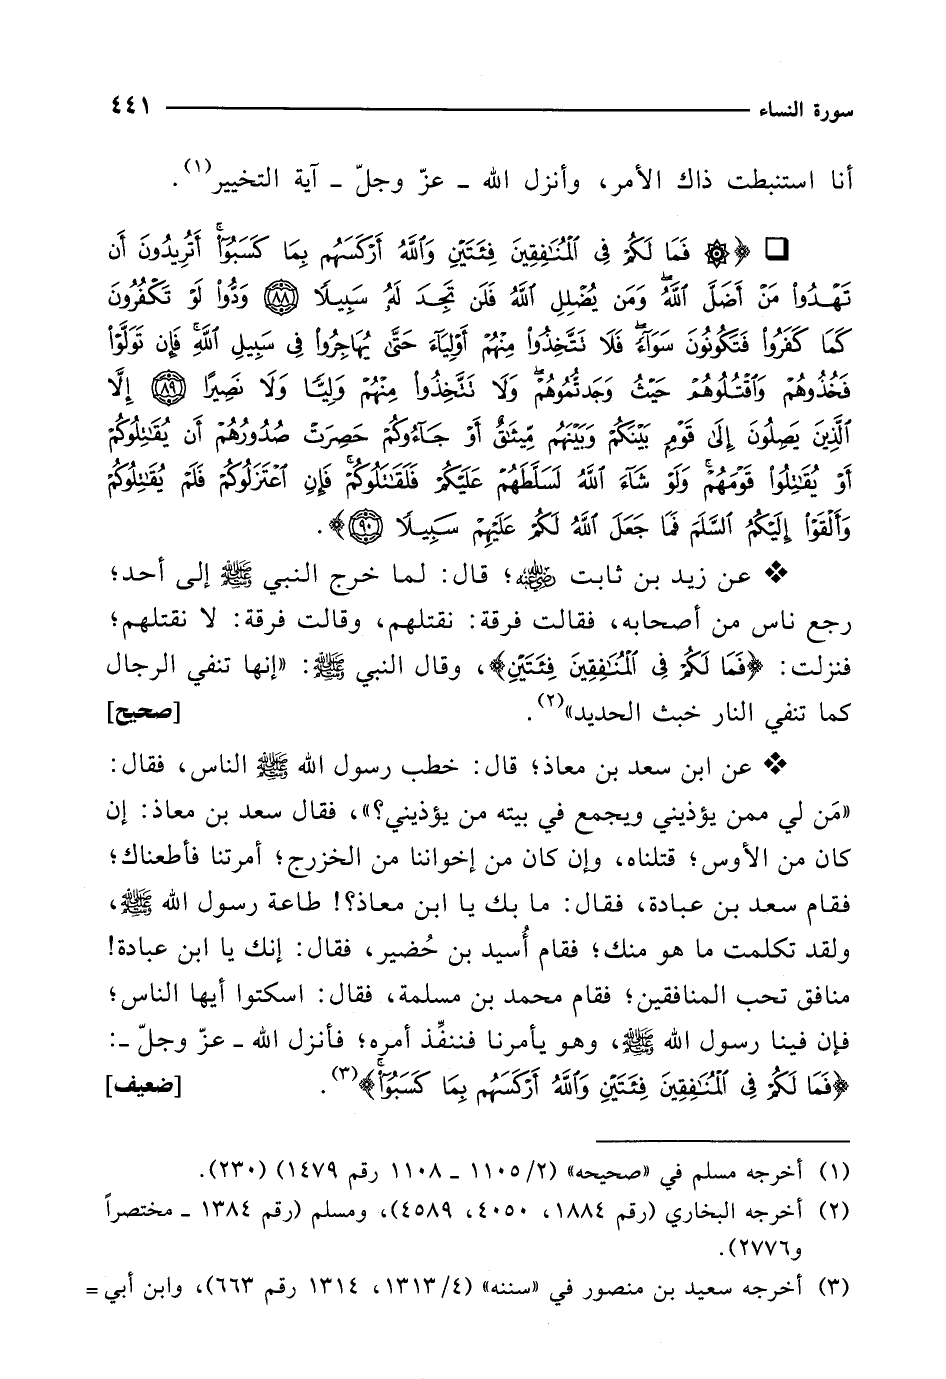 سورة النساء ٤٤١
أنا استنبطت ذاك الأمر، وأنزل الله ـ عزّ وجلّ ـ آية التخيير(١).
❑ ﴿۞ فَمَا لَكُمْ فِى ٱلْمُنَٰفِقِينَ فِئَتَيْنِ وَٱللَّهُ أَرْكَسَهُم بِمَا كَسَبُوٓا۟ۚ أَتُرِيدُونَ أَن
تَهْدُوا۟ مَنْ أَضَلَّ ٱللَّهُۖ وَمَن يُضْلِلِ ٱللَّهُ فَلَن تَجِدَ لَهُۥ سَبِيلًا ﴿٨٨﴾ وَدُّوا۟ لَوْ تَكْفُرُونَ
كَمَا كَفَرُوا۟ فَتَكُونُونَ سَوَآءًۖ فَلَا نَتَّخِذُوا۟ مِنْهُمْ أَوْلِيَآءَ حَتَّىٰ يُهَاجِرُوا۟ فِى سَبِيلِ ٱللَّهِۚ فَإِن تَوَلَّوْا۟
فَخُذُوهُمْ وَٱقْتُلُوهُمْ حَيْثُ وَجَدتُّمُوهُمْۖ وَلَا نَتَّخِذُوا۟ مِنْهُمْ وَلِيًّا وَلَا نَصِيرًا ﴿٨٩﴾ إِلَّا
ٱلَّذِينَ يَصِلُونَ إِلَىٰ قَوْمٍۭ بَيْنَكُمْ وَبَيْنَهُم مِّيثَٰقٌ أَوْ جَآءُوكُمْ حَصِرَتْ صُدُورُهُمْ أَن يُقَٰتِلُوكُمْ
أَوْ يُقَٰتِلُوا۟ قَوْمَهُمْۚ وَلَوْ شَآءَ ٱللَّهُ لَسَلَّطَهُمْ عَلَيْكُمْ فَلَقَٰتَلُوكُمْۚ فَإِنِ ٱعْتَزَلُوكُمْ فَلَمْ يُقَٰتِلُوكُمْ
وَأَلْقَوْا۟ إِلَيْكُمُ ٱلسَّلَمَ فَمَا جَعَلَ ٱللَّهُ لَكُمْ عَلَيْهِمْ سَبِيلًا ﴿٩٠﴾﴾.
❖ عن زيد بن ثابت رضي الله عنه؛ قال: لما خرج النبي ﷺ إلى أحد؛
رجع ناس من أصحابه، فقالت فرقة: نقتلهم، وقالت فرقة: لا نقتلهم؛
فنزلت: ﴿فَمَا لَكُمْ فِى ٱلْمُنَٰفِقِينَ فِئَتَيْنِ﴾، وقال النبي ﷺ: «إنها تنفي الرجال
كما تنفي النار خبث الحديد»(٢). [صحيح]
❖ عن ابن سعد بن معاذ؛ قال: خطب رسول الله ﷺ الناس، فقال:
«مَن لي ممن يؤذيني ويجمع في بيته من يؤذيني؟»، فقال سعد بن معاذ: إن
كان من الأوس؛ قتلناه، وإن كان من إخواننا من الخزرج؛ أمرتنا فأطعناك؛
فقام سعد بن عبادة، فقال: ما بك يا ابن معاذ؟! طاعة رسول الله ﷺ،
ولقد تكلمت ما هو منك؛ فقام أُسيد بن حُضير، فقال: إنك يا ابن عبادة!
منافق تحب المنافقين؛ فقام محمد بن مسلمة، فقال: اسكتوا أيها الناس؛
فإن فينا رسول الله ﷺ، وهو يأمرنا فننفِّذ أمره؛ فأنزل الله ـ عزّ وجلّ ـ:
﴿فَمَا لَكُمْ فِى ٱلْمُنَٰفِقِينَ فِئَتَيْنِ وَٱللَّهُ أَرْكَسَهُم بِمَا كَسَبُوٓا۟ۚ﴾(٣). [ضعيف]
(١) أخرجه مسلم في «صحيحه» (٢/ ١١٠٥ ـ ١١٠٨ رقم ١٤٧٩) (٢٣٠).
(٢) أخرجه البخاري (رقم ١٨٨٤، ٤٠٥٠، ٤٥٨٩)، ومسلم (رقم ١٣٨٤ ـ مختصراً
و٢٧٧٦).
(٣) أخرجه سعيد بن منصور في «سننه» (٤/ ١٣١٣، ١٣١٤ رقم ٦٦٣)، وابن أبي =